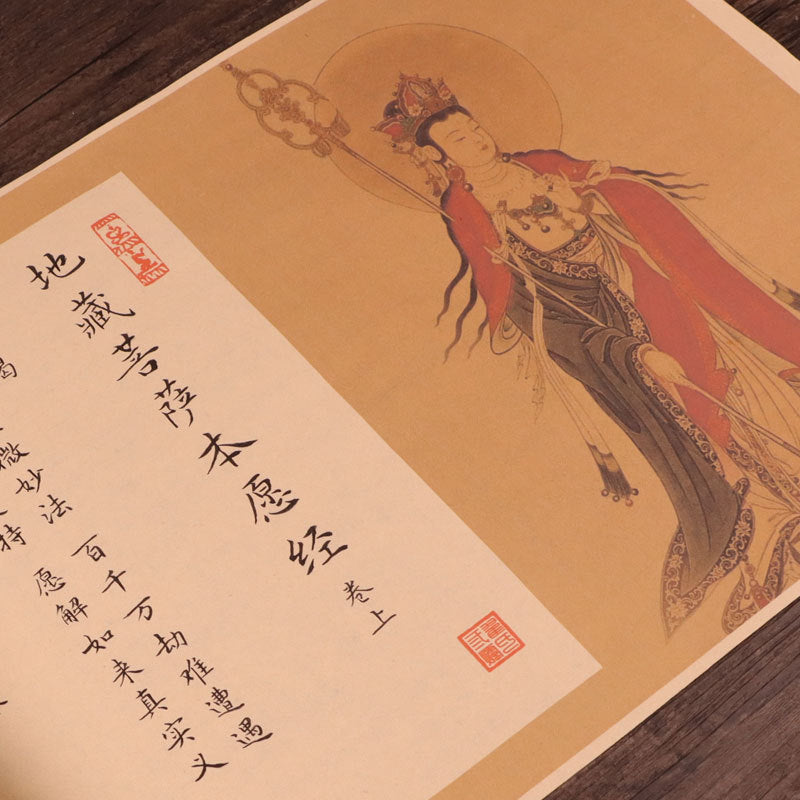 地藏菩萨本愿经 卷上
微妙法 百千万劫难遭遇
持 愿解如来真实义